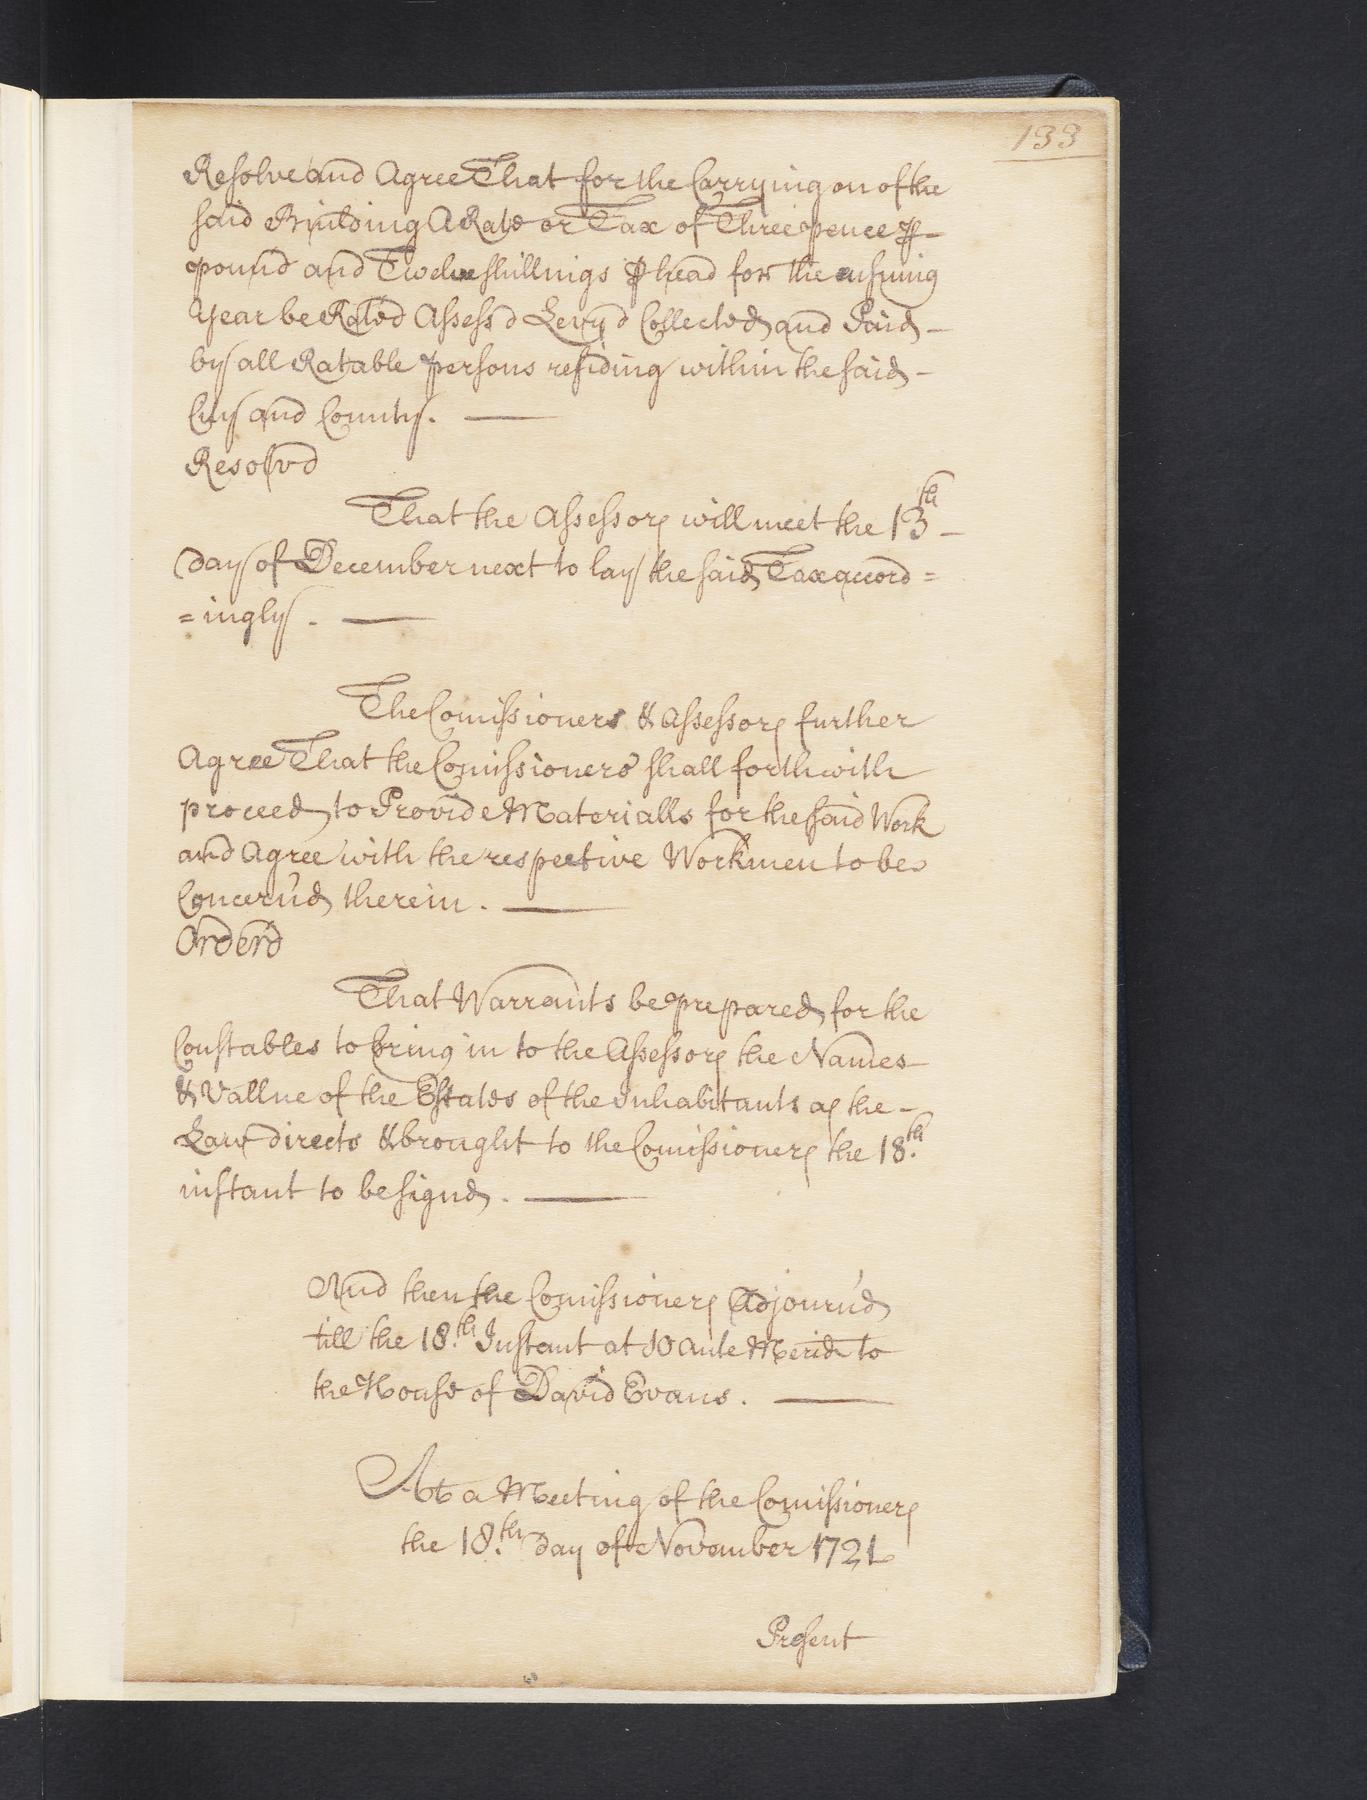 133
Resolve and Agree That for the Carrying on of the
said Building A Rate or Tax of Three pence ⅌
pound and Twelve shillings ⅌ head for the ensuing
Year be Rated Assess'd Levy'd Collected and Paid
by all Ratable persons residing within the said
City and County.
Resolvd
That the Assessors will meet the 13th
day of December next to lay the said Tax accord=
=ingly.
The Comissioners & Assessors further
Agree That the Comissioners shall forthwith
proceed to Provide Materialls for the said Work
and Agree with the respective Workmen to be
Concern'd therein.
Orderd
That Warrants be prepared for the
Constables to bring in to the Assessors the Names
& Vallue of the Estates of the Inhabitants as the
Law directs & brought to the Comissioners the 18th.
instant to be signd.
And then the Comissioners Adjourn'd
till the 18th. Instant at 10 Ante Merid to
the House of David Evans.
At a Meeting of the Comissioners
the 18th. day of November 1721
Present